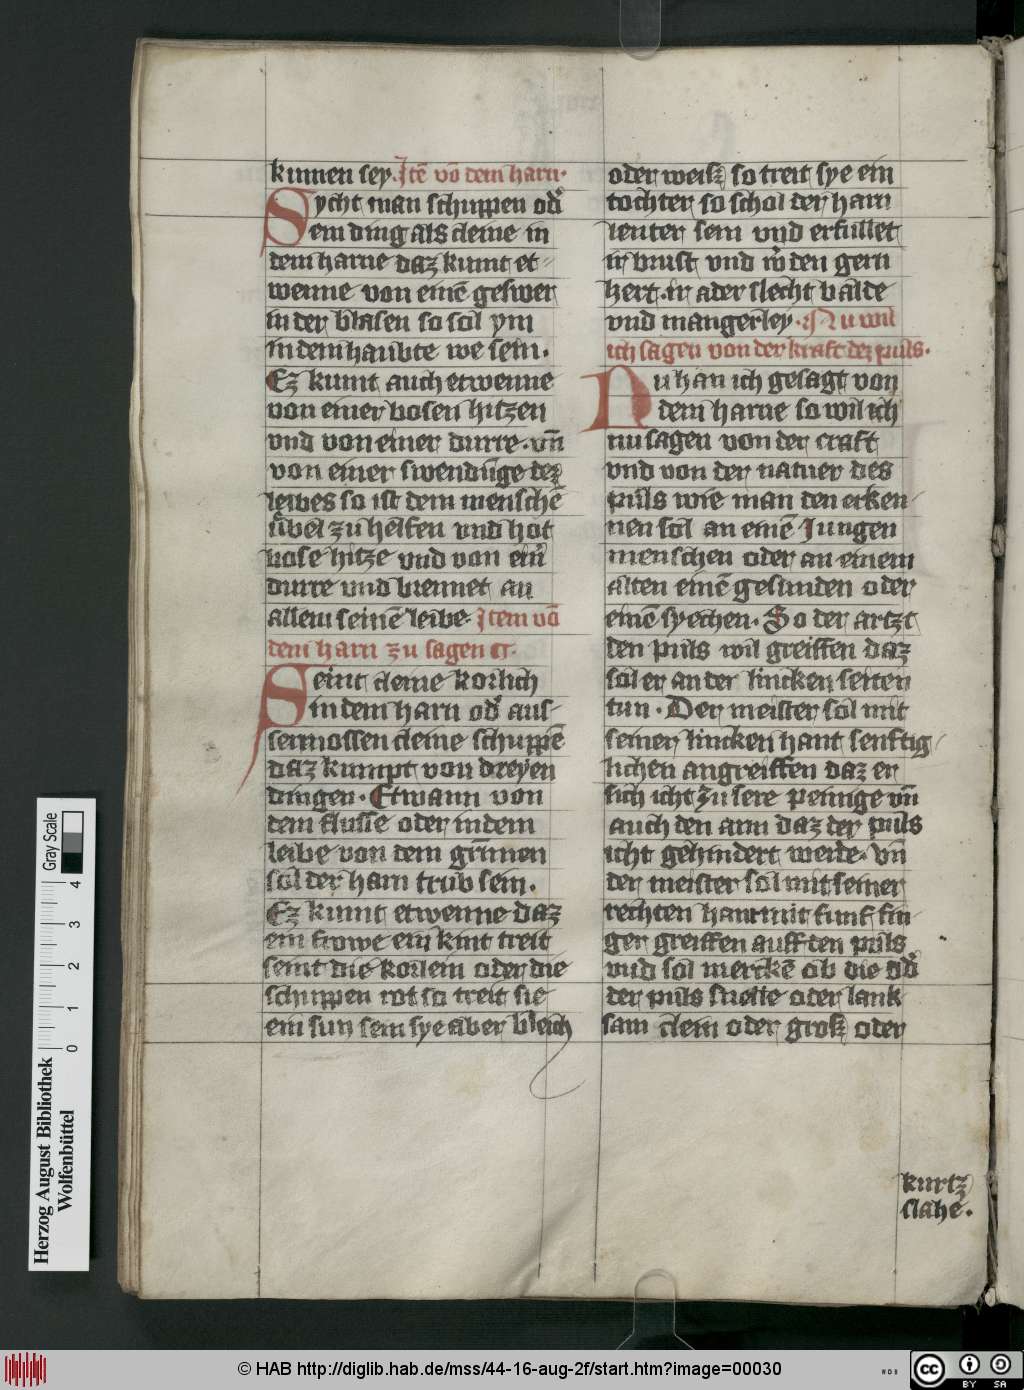 kunnen sey. Jtē vō dem harn.
Sycht man schuppen od̕
ein ding als cleine in
dem harne daz kumt et-
wenne von einē geswer
in der blasen so sol ym
in dem haubte we sein.
Ez kumt auch etwenne
von einer bosen hitzen
vnd von einer durre. vn̄
von einer swendūge dez
leibes so ist dem menschē
ubel zu helfen vnd hot
bose hitze vnd von ein̕
durre vnd brennet an
allem seinē leibe. Jtem vō
dem harn zu sagen
Seint cleine kornlich
in dem harn od̕ aus-
sermossen cleine schuppē
daz kumpt von dreyen
dingen. Etwann von
dem flusse oder in dem
leibe von dem grimen
sol der harn trub sein.
Ez kumt etwenne daz
ein frowe ein kint treit
seint die kornlein oder die
schuppen rot so treit sie
ein sun sein sye aber bleich
oder weisz so treit sye ein
tochter so schol der harn
leuter sein vnd erfullet
ir brust vnd w̕den gern
hert. ir ader slecht balde
vnd mangerley. Nu wil
ich sagen von der kraft dez puls.
Nu han ich gesagt von
dem harne so wil ich
nu sagen von der craft
vnd von der natuer des
puls wie man den erken-
nen sol an einē Jungen
menschen oder an einem
alten einē gesunden oder
einē syechen. So der artzt
den puls wil greiffen daz
sol er an der lincken seiten
tun. Der meister sol mit
seiner lincken hant senftig-
lichen angreiffen daz er
sich icht zu sere peinige vn̄
auch den arm daz der puls
icht gehindert werde. vn̄
der meister sol mit seiner
rechten hant mit funf fin-
gen greiffen auff den puls
vnd sol merckē ob die od̕
der puls snelle oder lank
sam clein oder grosz oder
kurtz
slahe.
Herzog August Bibliothek
Wolfenbüttel
0 1 2 3 4
Gray Scale
© HAB http://diglib.hab.de/mss/44-16-aug-2f/start.htm?image=00030
WDB
cc BY SA